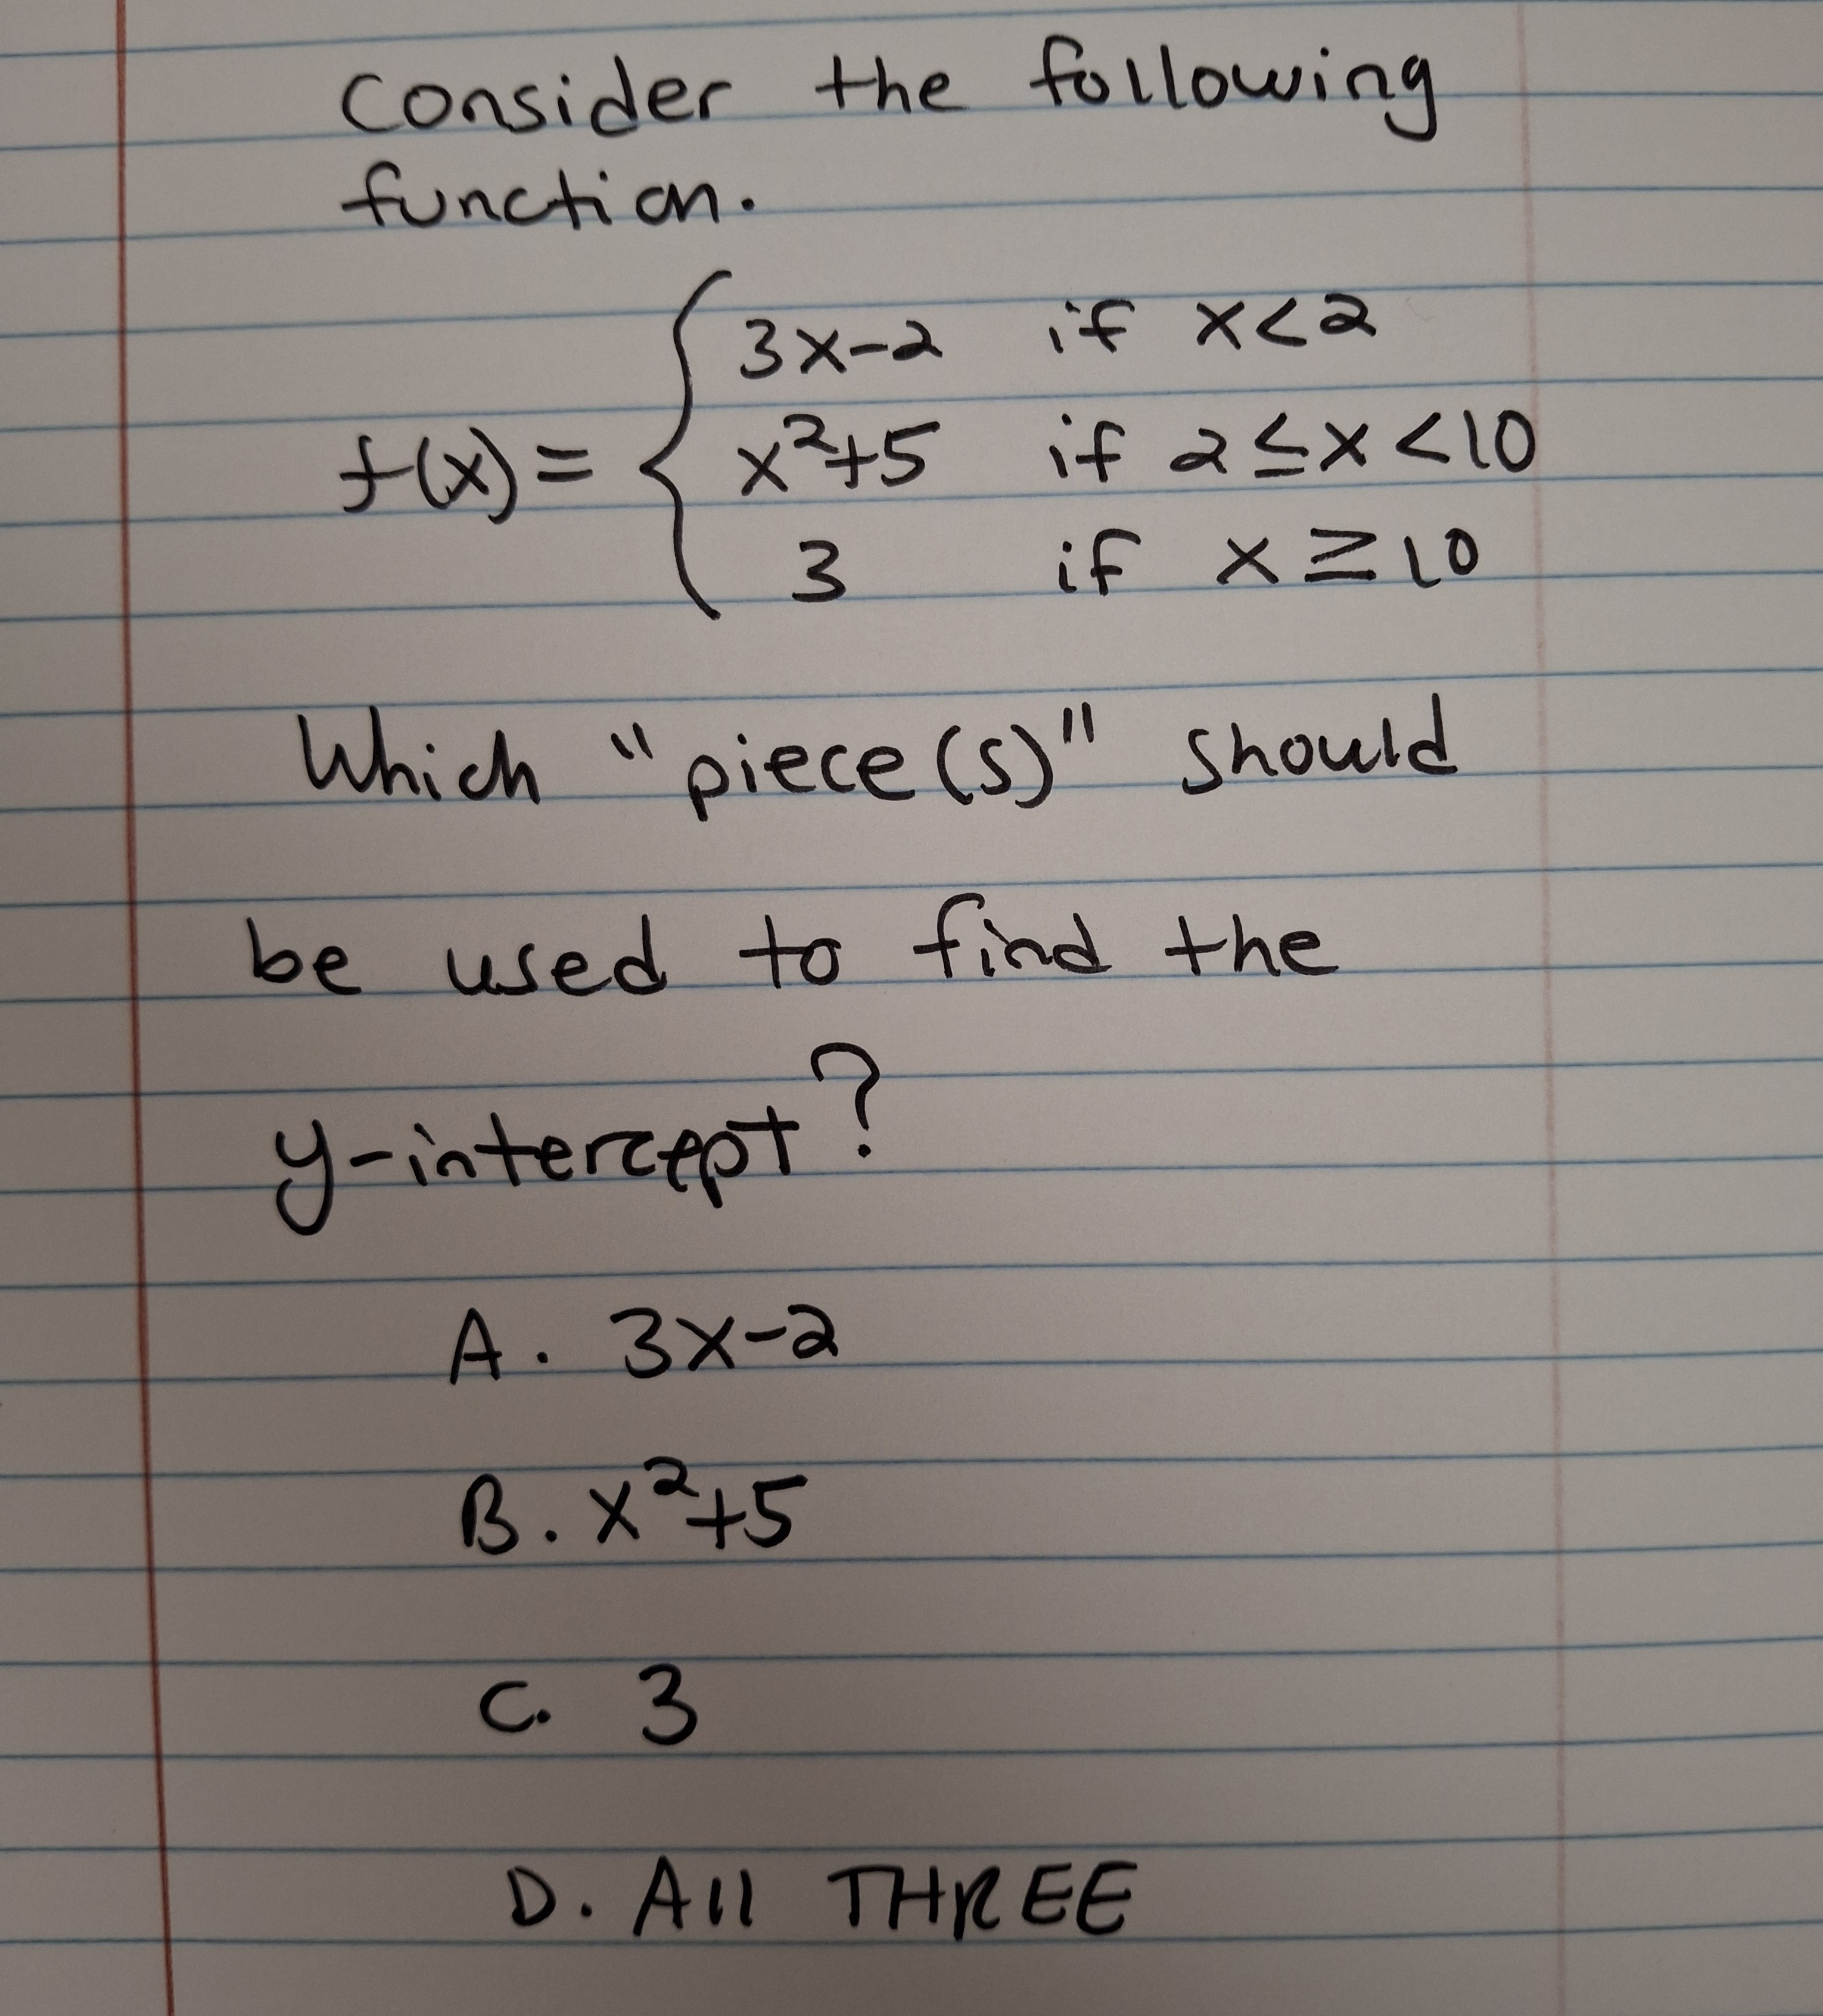 Consider the following
function.
f(x) = { 3x-2 if x<2
x²+5 if 2≤x<10
3 if x≥10
Which "piece(s)" should
be used to find the
y-intercept?
A. 3x-2
B. x²+5
C. 3
D. All THREE